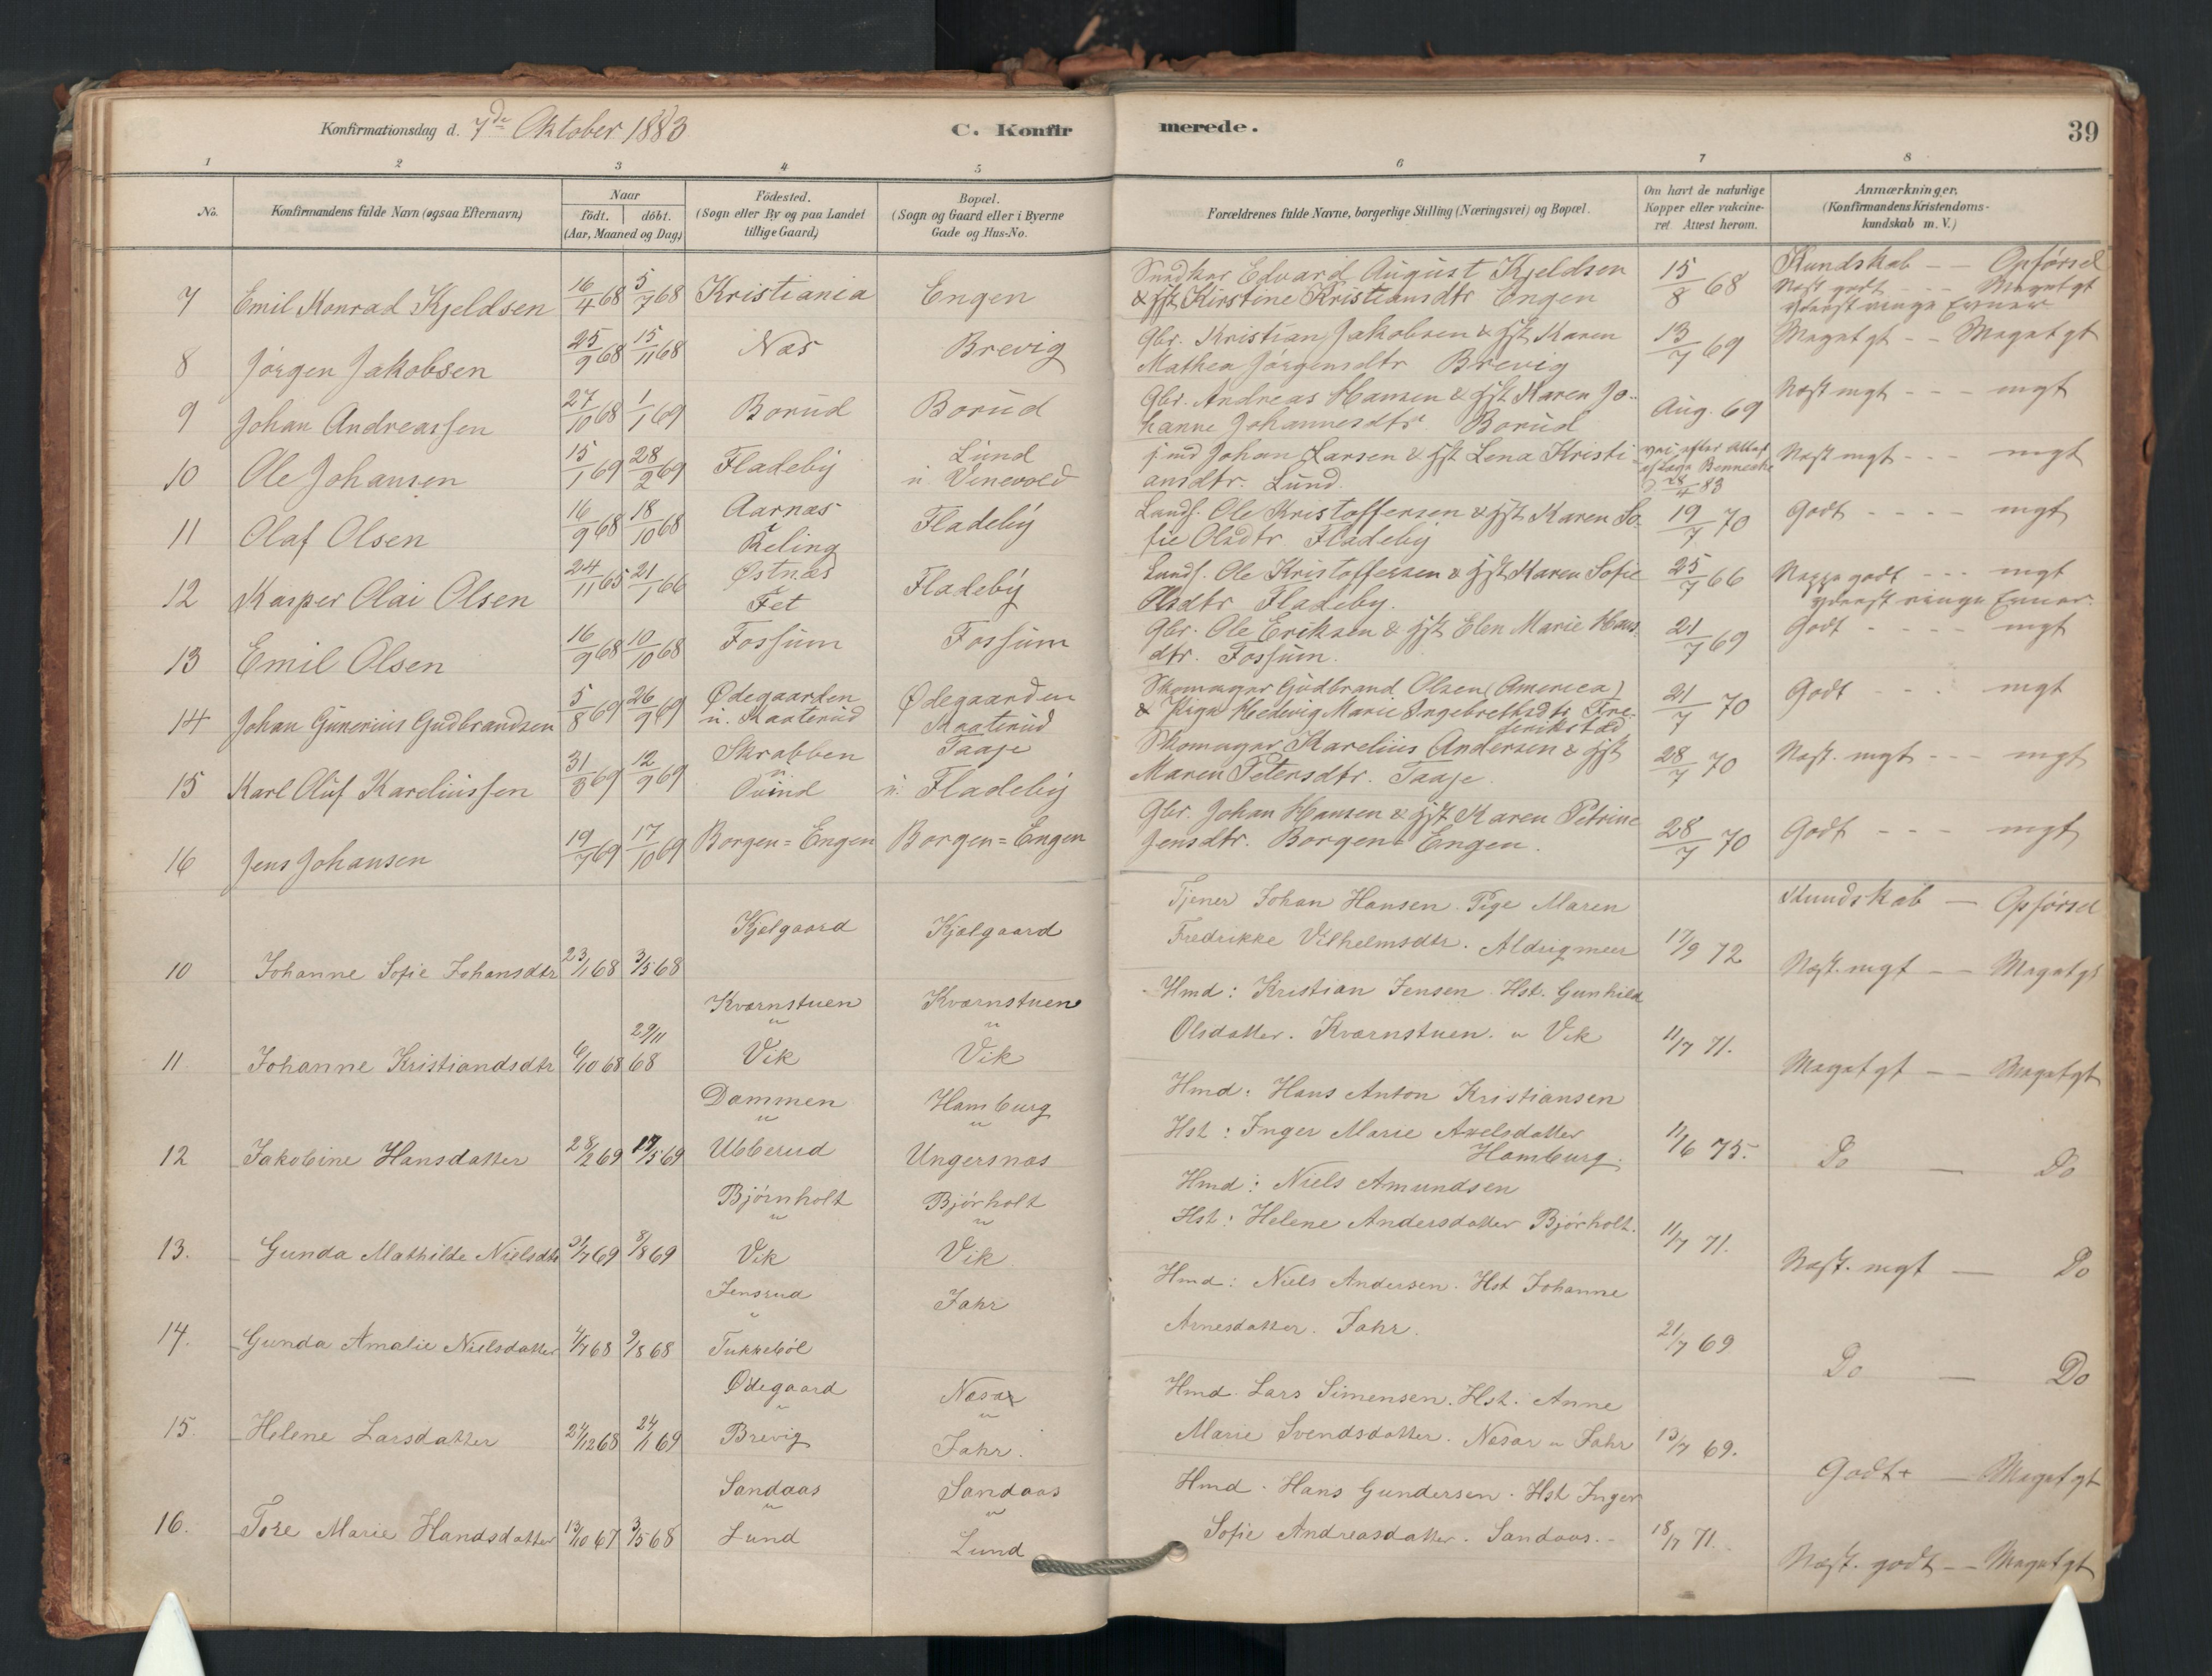 Konfirmationsdag d. 7de Oktober 1883 C. Konfirmerede. 39
1 2 3 4 5 6 7 8
No. Konfirmandens fulde Navn (ogsaa Efternavn) Naar födt. döbt. (Aar, Maaned og Dag) Födested. (Sogn eller By og paa Landet tillige Gaard) Bopæl. (Sogn og Gaard eller i Byerne Gade og Hus-No. Forældrenes fulde Navne, borgerlige Stilling (Næringsvei) og Bopæl. Om havt de naturlige Kopper eller vakcineret Attest herom. Anmærkninger. (Konfirmandens Kristendomskundskab m. V.)
Kundskab -- Opførsel
7 Emil Konrad Kjeldsen 16/4 68 5/7 68 Kristiania Engen Snedker Edvard August Kjeldsen & Hst Kirstine Kristiansdtr Engen 15/8 68 Næst godt -- Megetgt
8 Jørgen Jakobsen 25/9 68 15/11 68 Næs Brevig Gbr. Kristian Jakobsen & Hst Karen Mathea Jørgensdtr Brevig 13/7 69 Megetgt -- Megetgt
9 Johan Andreassen 27/10 68 1/1 69 Borud Borud Gbr. Andreas Hansen & Hst Karen Johanne Johannesdtr. Borud Aug. 69 Næst mgt -- mgt
10 Ole Johansen 15/1 69 28/2 69 Fladeby Lund u. Vinevold Johan Larsen & Hst Lena Kristiansdtr. Lund 28/4 83 Næst mgt --- mgt
11 Olaf Olsen 16/9 68 18/10 68 Aarnæs Røling Fladeby Landh. Ole Kristoffersen & Hst Karen Sofie Olsdtr. Fladeby 19/7 70 Godt ---- mgt
12 Kasper Olai Olsen 24/11 65 21/1 66 Østnæs Fet Fladeby Landh. Ole Kristoffersen & Hst Karen Sofie Olsdtr Fladeby. 25/7 66 Neppe godt --- mgt
13 Emil Olsen 16/9 68 10/10 68 Fossum Fossum Gbr. Ole Eriksen & Hst Elen Marie Hansdtr. Fossum. 21/7 69 Godt ---- mgt
14 Johan Gunerius Gudbrandsen 5/8 69 26/9 69 Ødegaarden u. Kaaterud Ødegaarden Skomager Gudbrand Olsen (America) & Pige Hedevig Marie Engebrethsdtr Frederikstad 21/7 70 Godt --- mgt
15 Karl Oluf Kareliussen 31/3 69 12/9 69 Skrabben u Ouind Taaje u. Fladeby Skomager Karelius Andersen & Hst Maren Petersdtr. Taaje. 28/7 70 Næst. mgt --- mgt
16 Jens Johansen 19/7 69 17/10 69 Borgen=Engen Borgen=Engen Gbr. Johan Hansen & Hst Karen Petrine Jensdtr. Borgen=Engen. 28/7 70 Godt --- mgt
Kundskab — Opførsel
10 Johanne Sofie Johansdtr 23/1 68 3/5 68 Kjølgaard Kjølgaard Tjener Johan Hansen. Pige Maren Fredrikke Vilhelmsdtr. Aldrigmeer 17/9 72 Næst. mgt -- Megetgt
11 Johanne Kristiandsdtr 6/10 68 29/11 68 Kværnstuen u Vik Kværnstuen u Vik Hmd: Kristian Jensen. Hst. Gunhild Olsdatter. Kværnstuen. u Vik 11/7 71. Megetgt -- Megetgt
12 Jakobine Hansdatter 28/2 69 17/5 69 Dammen u Ubberud Hamburg u Ungersnæs Hmd: Hans Anton Kristiansen Hst: Inger Marie Axelsdatter Hamburg. 11/6 75. Do — Do
13. Gunda Mathilde Nielsdtr 3/7 69 8/8 69 Bjørnholt u Vik Bjørholt u Vik Hmd: Niels Amundsen Hst: Helene Andersdatter Bjørholt. 11/7 71. Næst. mgt — Do
14. Gunda Amalie Nielsdatter 4/7 68 9/8 68 Jensrud u Tukkebøl Jahr Hmd: Niels Andersen. Hst Johanne Arnesdatter. Jahr. 21/7 69 Do — Do
15. Helene Larsdatter 21/12 68 24/1 69 Ødegaard u Brevig Næsar u Jahr. Hmd. Lars Simensen. Hst. Anne Marie Svendsdatter. Næsar u Jahr 13/7 69. Godt+ — Megetgt
16. Tore Marie Handsdatter 13/10 67 3/5 68 Sandaas u Lund Sandaas u Lund Hmd. Hans Gundersen. Hst Inger Sofie Andreasdatter. Sandaas. 18/7 71. Næst. godt -- Megetgt